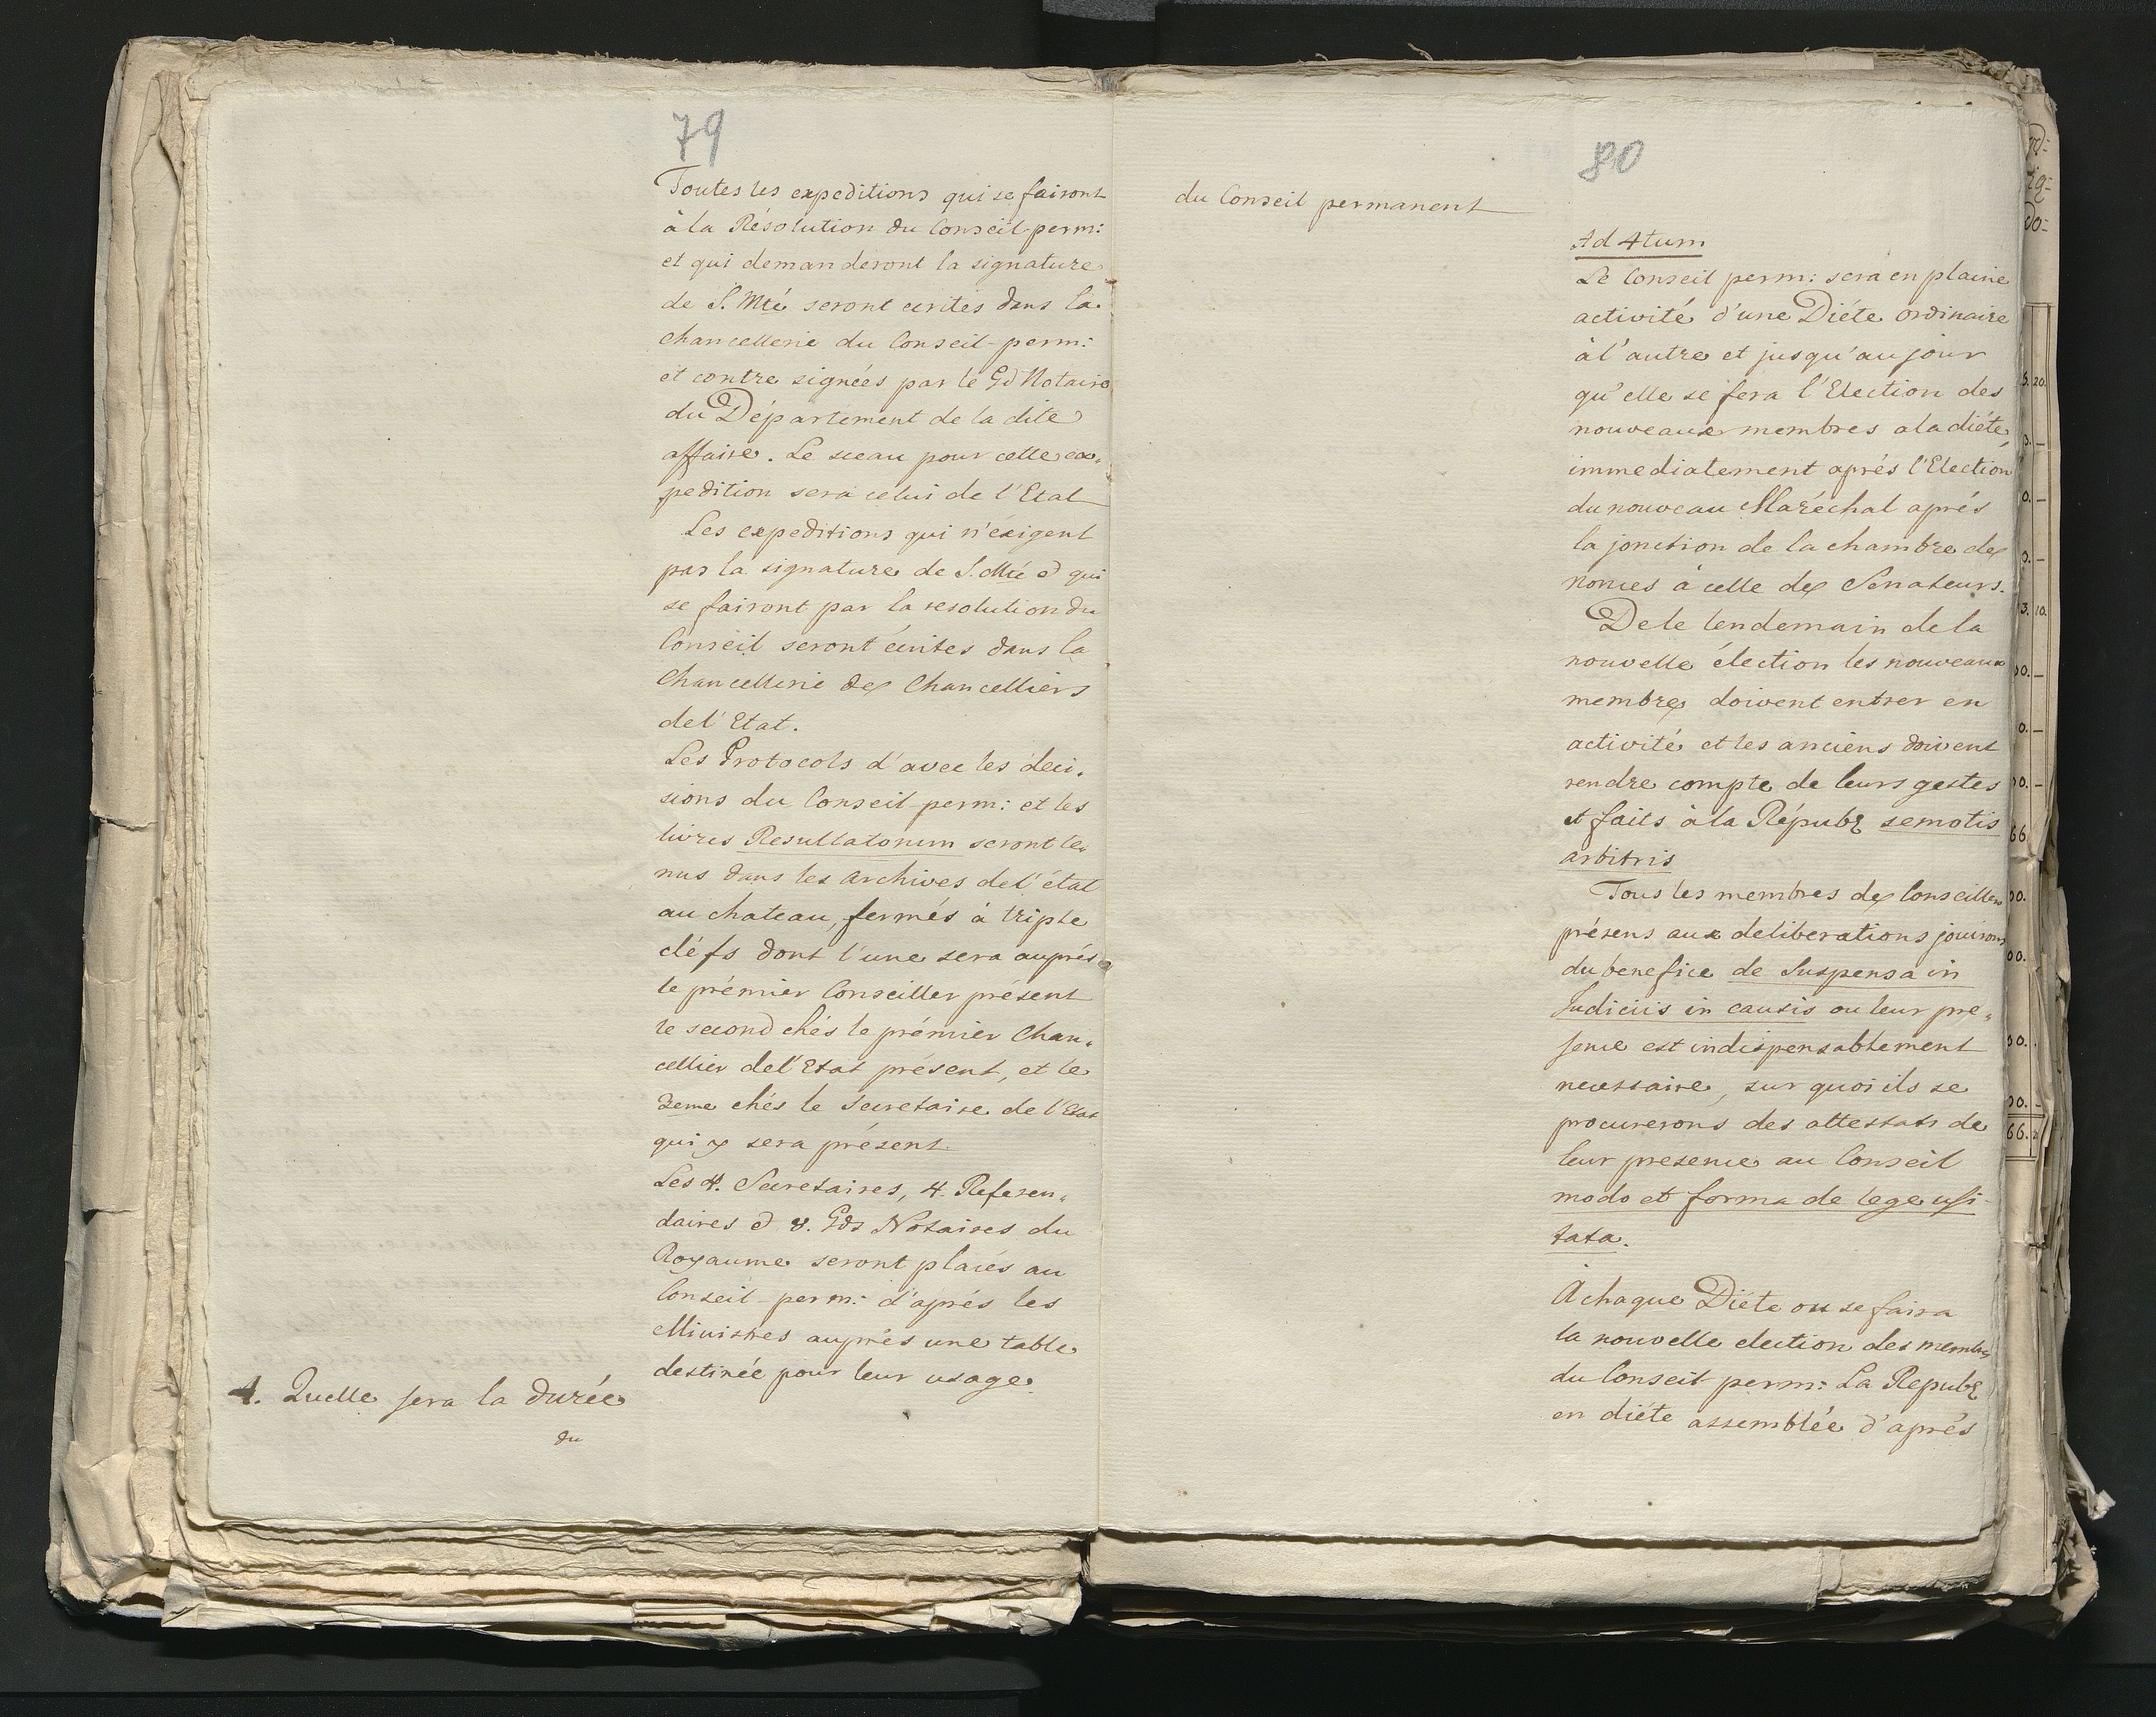 79
Toutes les expeditions qui se fairont
à la Résolution du Conseil-perm:
et qui demanderont la signature
de S. Mté seront ecrites dans la
chancellerie du Conseil-perm:
et contre signées par le Gd Notaire
du Département de la dite
affaire. Le sceau pour cette ex„
pedition sera celui de l'Etat
Les expeditions qui n'exigent
pas la signature de S. Mté & qui
se fairont par la resolution du
Conseil seront écrites dans la
Chancellerie des Chancelliers
de l'Etat.
Les Protocols d'avec les deci„
sions du Conseil-perm: et les
livres Resultatorum seront te„
nus dans les archives de l'état
au chateau, fermés à triple
cléfs dont l'une sera auprés
le prémier Conseiller présent
le second chés le prémier Chan„
cellier de l'Etat présent, et le
3eme chés le Secretaire de l'Etat
qui y sera présent
Les 4. Secretaires, 4. Referen„
daires & 8. Gds Notaires du
Royaume seront placés au
Conseil-perm: d'aprés les
Ministres auprés une table
destinée pour leur usage.
4. Quelle sera la durée
du
80
du Conseil permanent
Ad 4tum
Le Conseil perm: sera en plaine
activité d'une Diéte ordinaire
à l'autre et jusqu'au jour
qu'elle se fera l'Election des
nouveaux membres a la diéte,
immediatement aprés l'Election
du nouveau Maréchal aprés
la jonction de la chambre des
Nonces à celle des Senateurs.
De le lendemain de la
nouvelle élection les nouveaux
membres doivent entrer en
activité et les anciens doivent
rendre compte de leurs gestes
et faits à la Républ semotis
arbitris
Tous les membres des Conseillers
présens aux deliberations jouirons
du benefice de Suspensa in
Judiciis in causis ou leur pre„
sence est indispensablement
necessaire, sur quoi ils se
procurerons des attestats de
leur presence au Conseil
modo et forma de lege usi
tata.
A chaque Diéte ou se faira
la nouvelle election des membres
du Conseil-perm: La Republ
en diéte assemblée d'aprés